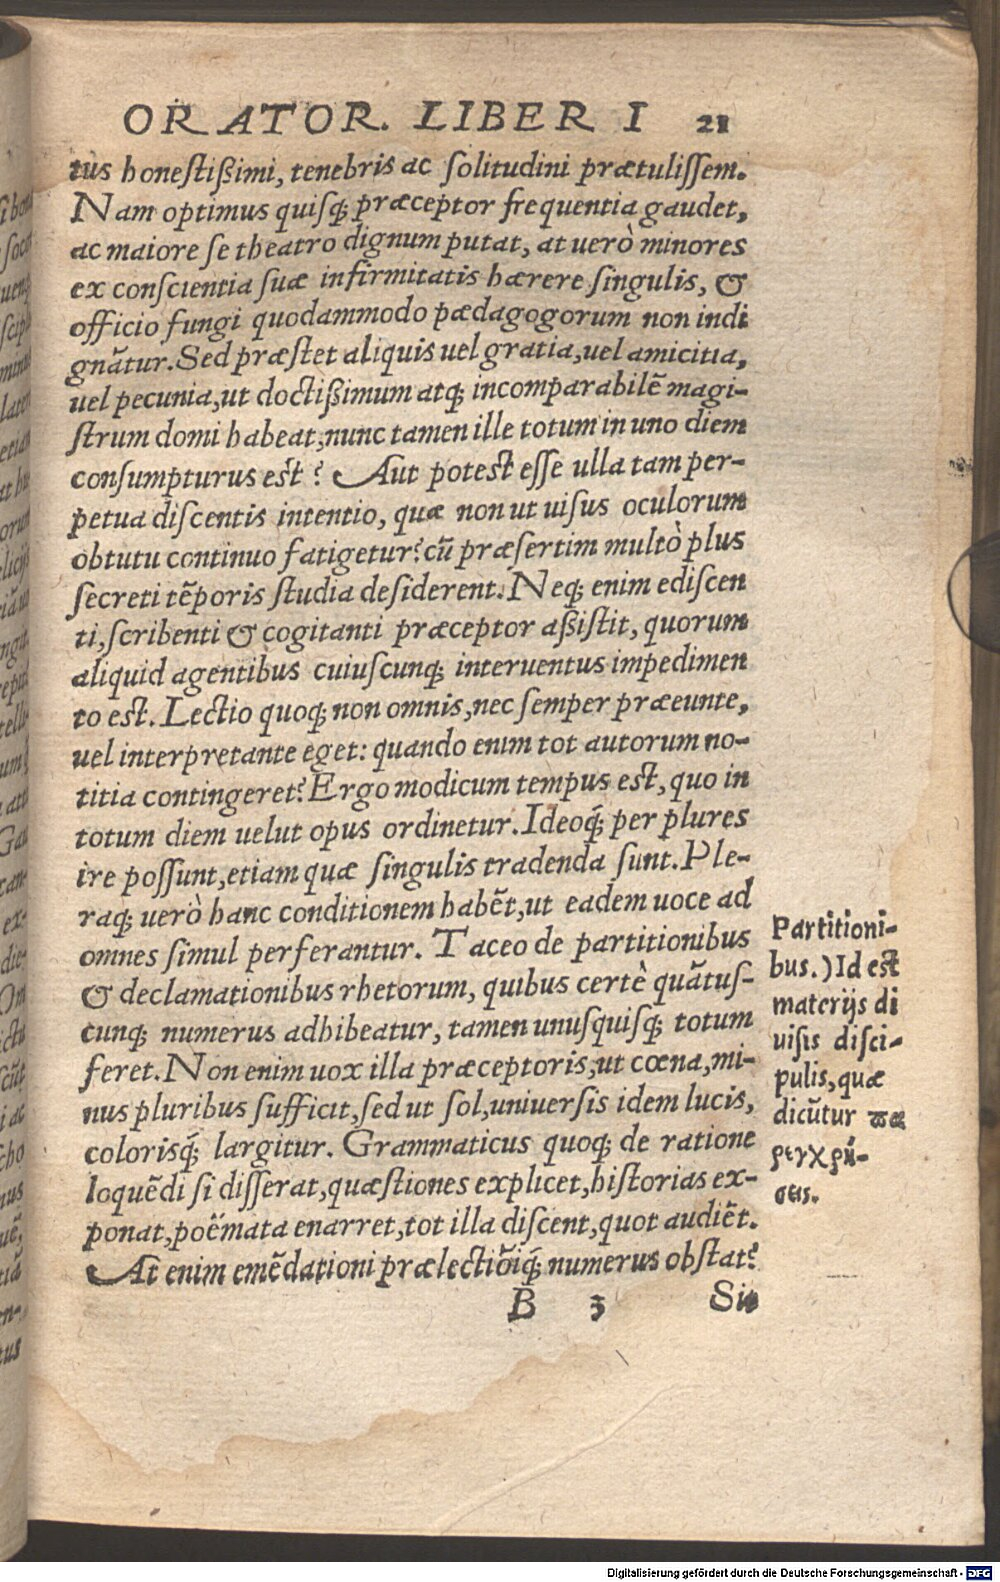 ORATOR. LIBER I 21
tus honestißimi, tenebris ac ſolitudini prætuliſſem.
Nam optimus quiſq; præceptor frequentia gaudet,
ac maiore ſe theatro dignum putat, at uerò minores
ex conſcientia ſuæ infirmitatis hærere ſingulis, &
officio fungi quodammodo pædagogorum non indi
gnãtur. Sed præſtet aliquis uel gratia, uel amicitia,
uel pecunia, ut doctißimum atq; incomparabilẽ magi-
ſtrum domi habeat, nunc tamen ille totum in uno diem
conſumpturus eſt? Aut poteſt eſſe ulla tam per-
petua diſcentis intentio, quæ non ut uiſus oculorum
obtutu continuo fatigetur? cũ præſertim multò plus
ſecreti tẽporis ſtudia deſiderent. Neq; enim ediſcen
ti, ſcribenti & cogitanti præceptor aßiſtit, quorum
aliquid agentibus cuiuſcunq; interuentus impedimen
to eſt. Lectio quoq; non omnis, nec ſemper præeunte,
uel interpretante eget: quando enim tot autorum no-
titia contingeret? Ergo modicum tempus eſt, quo in
totum diem uelut opus ordinetur. Ideoq́; per plures
ire poſſunt, etiam quæ ſingulis tradenda ſunt. Ple-
raq; uerò hanc conditionem habẽt, ut eadem uoce ad
omnes ſimul perferantur. Taceo de partitionibus
& declamationibus rhetorum, quibus certè quãtuſ-
cunq; numerus adhibeatur, tamen unuſquiſq; totum
feret. Non enim uox illa præceptoris, ut cœna, mi-
nus pluribus ſufficit, ſed ut ſol, uniuerſis idem lucis,
colorisq́; largitur. Grammaticus quoq; de ratione
loquẽdi ſi diſſerat, quæſtiones explicet, hiſtorias ex-
ponat, poëmata enarret, tot illa diſcent, quot audiẽt.
At enim emẽdationi prælectiõiq́; numerus obſtat?
B 3 Si
Partitioni-
bus.) Id eſt
materijs di
uiſis diſci-
pulis, quæ
dicũtur